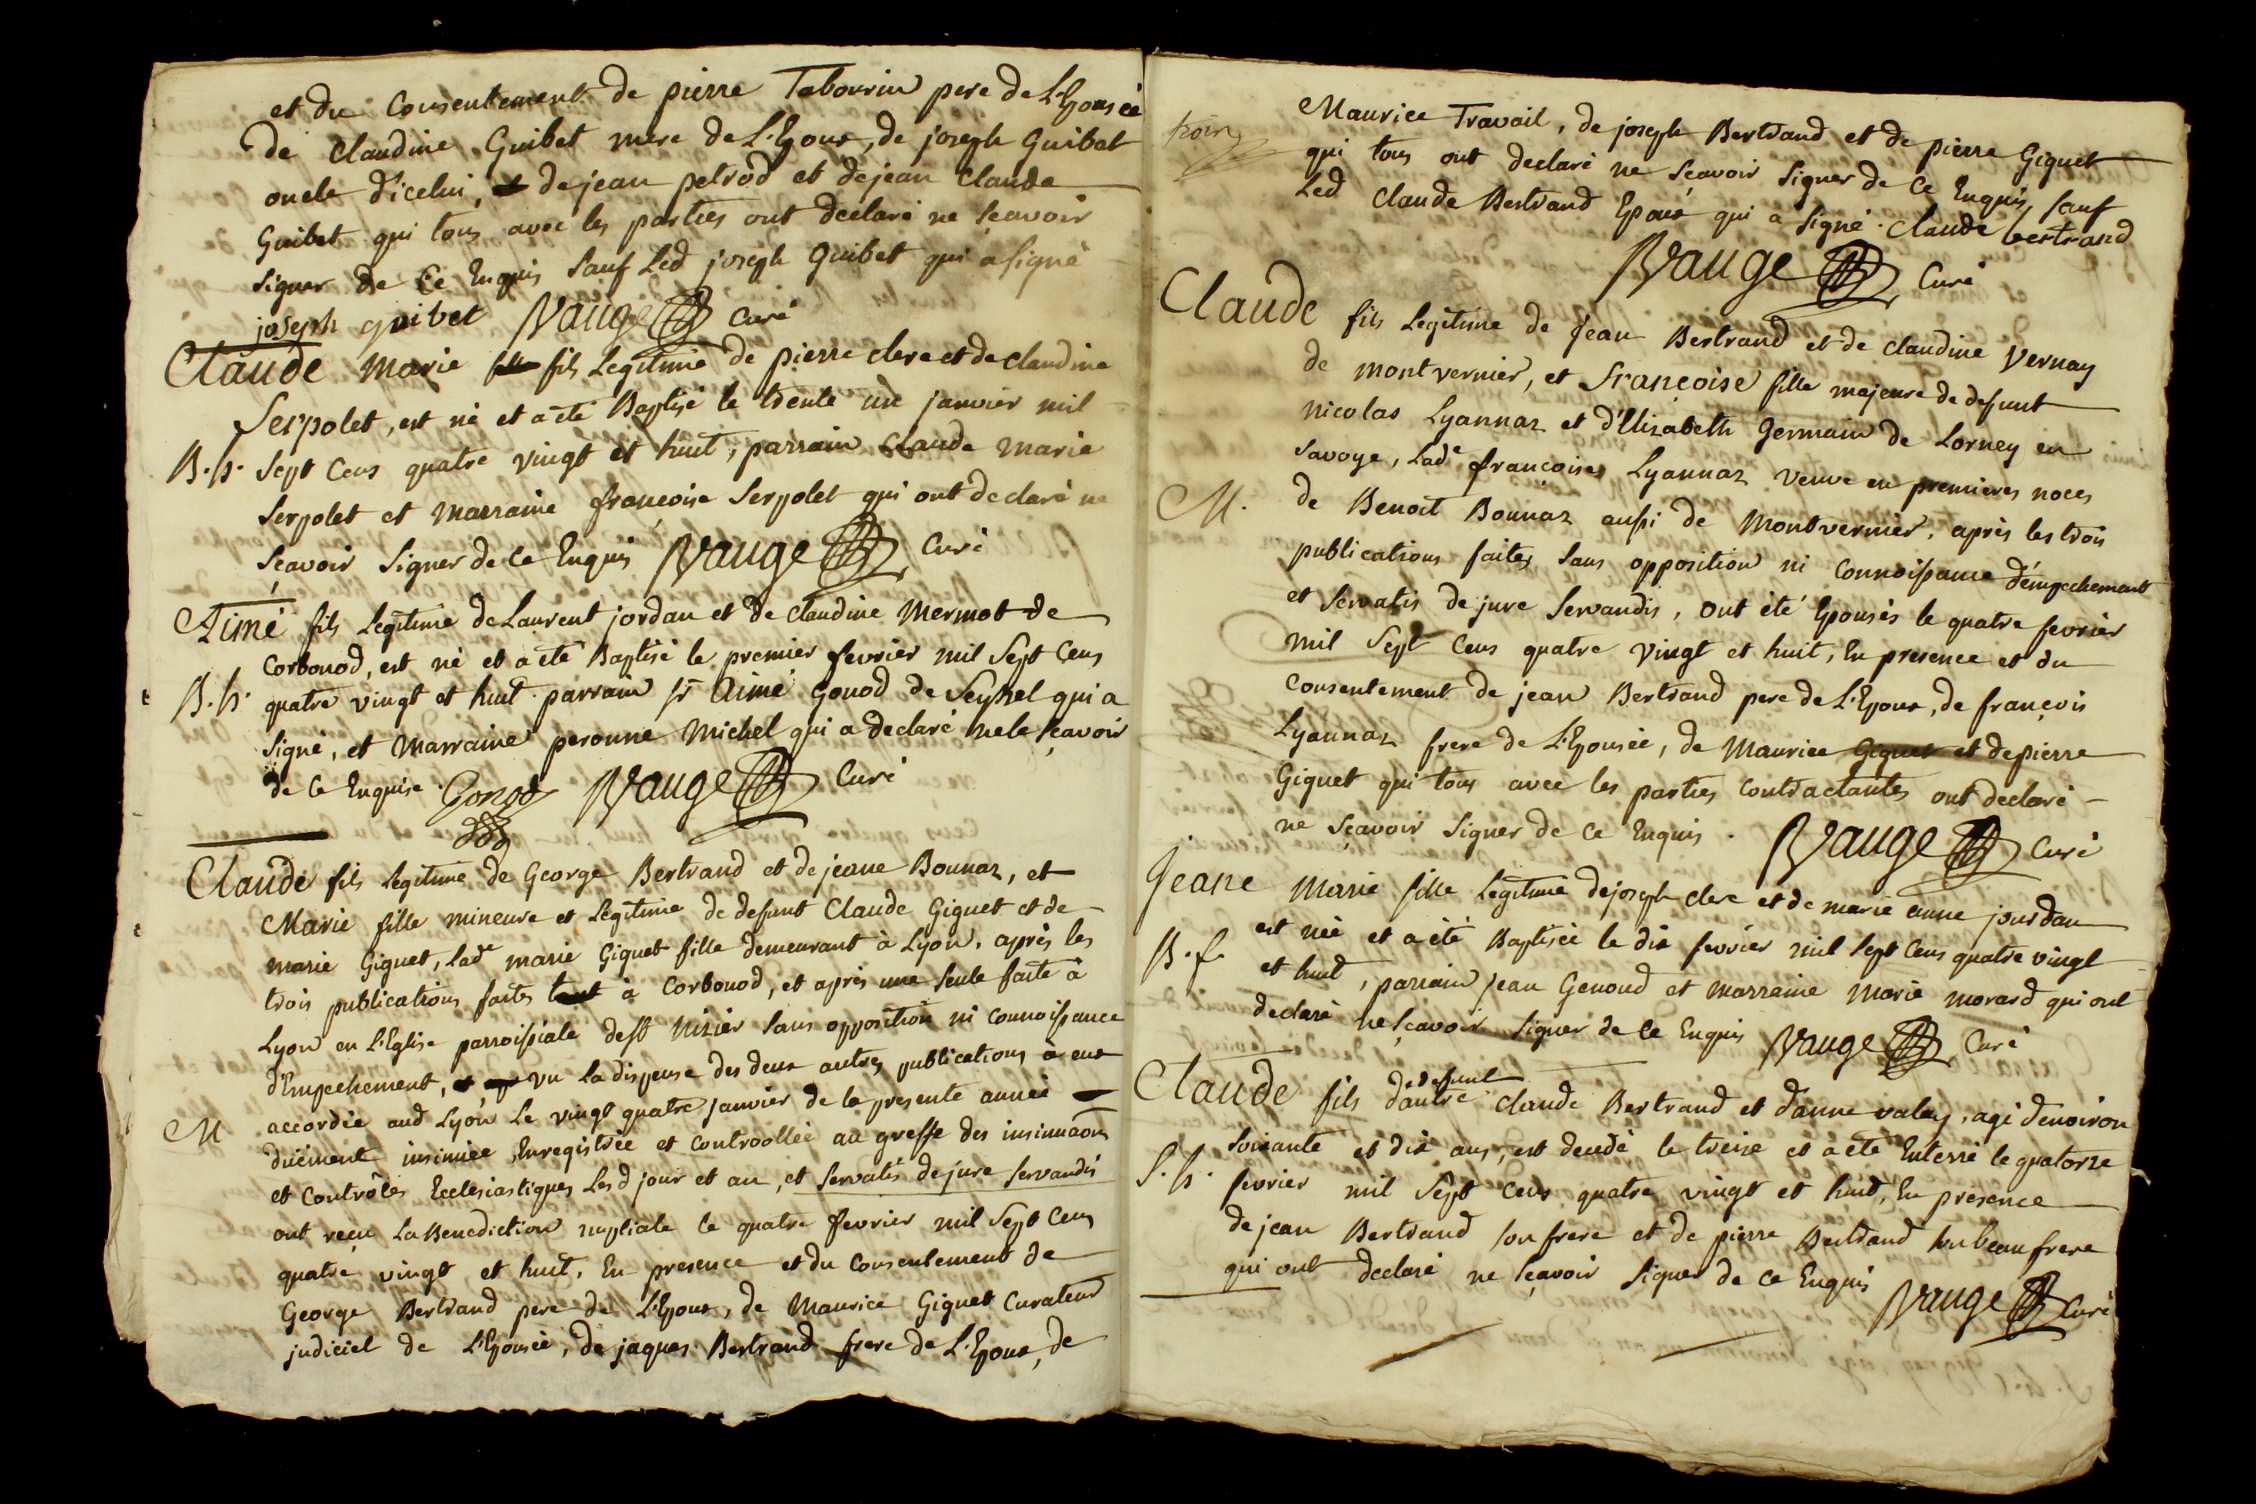 et du Consentement de pierre Tabourin pere de L'Epousée
de Claudine Guibet mere de L'Epoux, de joseph Guibet
oncle d'icelui, de jean petrod et de jean Claude
Guibet qui tous avec les parties ont declaré ne sçavoir
signer de ce Enquis sauf Led joseph Guibet qui a signé
joseph guibet Vauge Curé
Claude Marie fils Legitime de pierre clerc et de claudine
Serpolet, est né et a été Baptisé le trente un janvier mil
B.h. sept cens quatre vingt et huit, parrain Claude Marie
Serpolet et Marraine françoise Serpolet qui ont declaré ne
sçavoir signer de ce Enquis Vauge Curé
Aimé fils Legitime de Laurent jordan et de Claudine Mermot de
Corbonod, est né et a été Baptisé le premier fevrier mil sept cens
B.h. quatre vingt et huit. parrain sr Aimé Gonod de Seyssel qui a
signé, et Marraine peronne Michel qui a declaré ne le sçavoir
de ce Enquise Gonod Vauge Curé
Claude fils legitime de George Bertrand et de jeane Bonnaz, et
Marie fille mineure et Legitime de defunt Claude Giguet et de
marie Giguet, Lade marie Giguet fille demeurant à Lyon, après les
trois publications faites tant à Corbonod, et après une seule faite à
Lyon en L'Eglise parroissiale de st Nizier sans opposition ni connoissance
d'Empechement, vu la dispense des deux autres publications à eux
accordée aud Lyon Le vingt quatre janvier de la presente année
M duëment insinuée Enregistrée et controollée au greffe des insinuaons
et Contrôles Ecclesiastiques Lesd jour et an, et servatis de jure servandis
ont reçu La Benediction nuptiale le quatre fevrier mil sept cens
quatre vingt et huit, En presence et du Consentement de
George Bertrand pere de L'Epoux, de Maurice Giguet Curateur
judiciel de L'Epousée, de jaques Bertrand frere de L'Epoux, de
trois
Maurice Travail, de joseph Bertrand et de pierre Giguet
qui tous ont declaré ne sçavoir signer de ce Enquis, sauf
Led Claude Bertrand Epoux qui a signé. Claude bertrand
Vauge Curé
Claude fils Legitime de Jean Bertrand et de claudine Vernay
de montvernier, et Françoise fille majeure de defunt
nicolas Lyannaz et d'Elizabeth Germain de Lorney en
Savoye, Lade françoise Lyannaz veuve en premieres noces
M. de Benoit Bonnaz aussi de Montvernier, après les trois
publications faites sans opposition ni connoissance d'émpechement
et servatis de jure servandis, ont été Epousés le quatre fevrier
mil sept cens quatre vingt et huit, En presence et du
Consentement de jean Bertrand pere de L'Epoux, de françois
Lyannaz frere de L'Epousée, de Maurice Giguet et de pierre
Giguet qui tous avec les parties contractantes ont declaré
ne sçavoir signer de ce Enquis. Vauge Curé
Jeane Marie fille Legitime de joseph clerc et de marie anne jourdan
est née et a été Baptisée le dix fevrier mil sept cens quatre vingt
B.f. et huit, parrain jean Genoud et marraine Marie morard qui ont
declaré ne sçavoir signer de ce Enquis Vauge Curé
Claude fils d'autre defunt Claude Bertrand et d'anne valey, agé d'environ
soixante et dix ans, est decedé le treize et a été Enterré le quatorze
S.h. fevrier mil sept cens quatre vingt et huit, En presence
de jean Bertrand son frere et de pierre Bertrand son beau frere
qui ont declaré ne sçavoir signer de ce Enquis
Vauge Curé